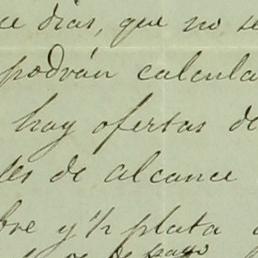 ce dias, que no se
podrán calcula
hay ofertas de
les de alcance
bre y ½ plata
de pago